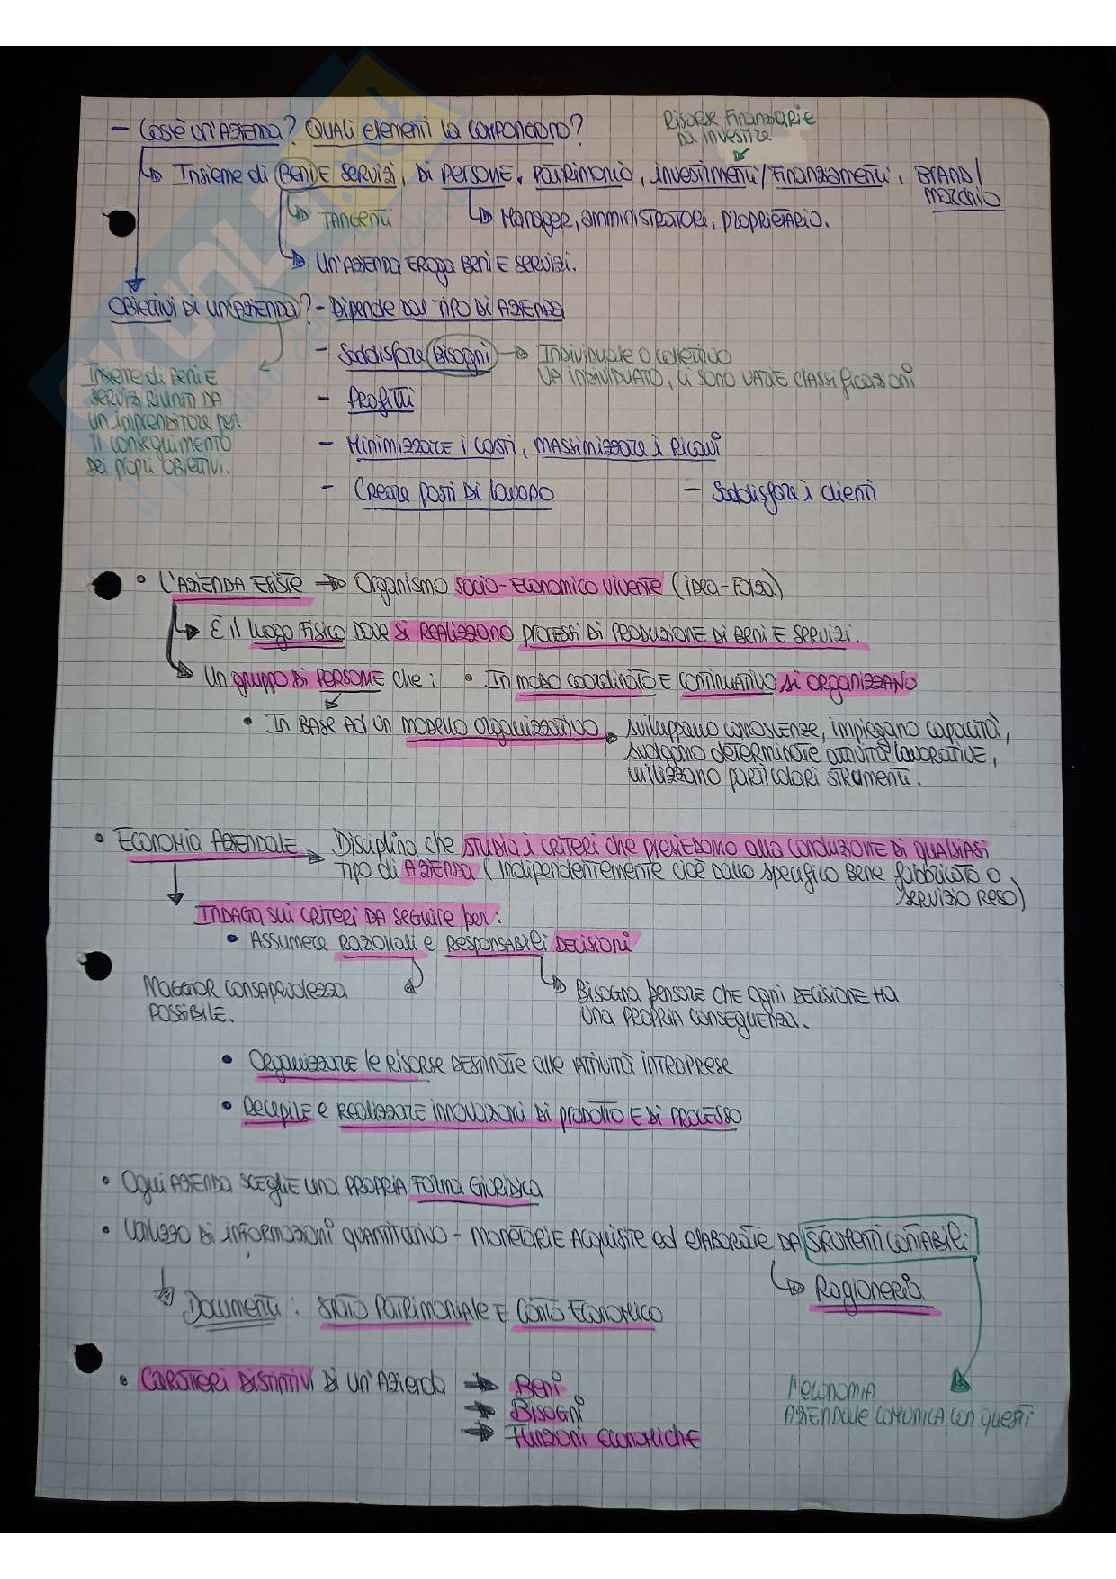 - Cos'è un'azienda? Quali elementi la compongono?
Risorse Finanziarie
da investire
Insieme di Beni e servizi, di persone, patrimonio, investimenti/finanziamenti, brand/
marchio
Tangenti
Manager, amministratori, proprietario.
Un'azienda eroga beni e servizi.
Obiettivi di un'azienda? - Dipende dal tipo di azienda
- Soddisfare Bisogni → Individuale o collettivo
Va individuato, ci sono varie classificazioni
Insieme di Beni e
servizi riuniti da
un imprenditore per
il conseguimento
dei propri obiettivi.
- Profitti
- Minimizzare i costi, massimizzare i ricavi
- Creare posti di lavoro - Soddisfare i clienti
• L'azienda esiste → Organismo socio-economico vivente (idea-forza)
È il luogo fisico dove si realizzono processi di produzione di beni e servizi.
Un gruppo di persone che: • In modo coordinato e continuativo si organizzano
• In base ad un modello organizzativo → sviluppano conoscenze, impiegano capacità,
svolgono determinate attività lavorative,
utilizzano particolari strumenti.
• Economia Aziendale → Disciplina che studia i criteri che presiedono alla conduzione di qualsiasi
tipo di azienda (indipendentemente cioè dallo specifico bene fabbricato o
servizio reso)
Indaga sui criteri da seguire per:
• Assumere razionali e responsabili decisioni
Maggior consapevolezza
possibile.
Bisogna pensare che ogni decisione ha
una propria conseguenza.
• Organizzare le risorse destinate alle attività intraprese
• Recepire e realizzare innovazioni di prodotto e di processo
• Ogni azienda sceglie una propria forma giuridica
• Utilizzo di informazioni quantitativo - monetarie acquisite ed elaborate da strumenti contabili
Ragioneria
Documenti: Stato Patrimoniale e Conto Economico
• Caratteri distintivi di un'azienda → Beni
→ Bisogni
→ Funzioni economiche
l'economia
aziendale comunica con questi